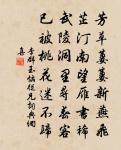 芳草萋萋新燕飛
芷汀南望雁書稀
武陵洞裏尋春客
已被桃花迷不歸
李群玉惱從兄詞典網